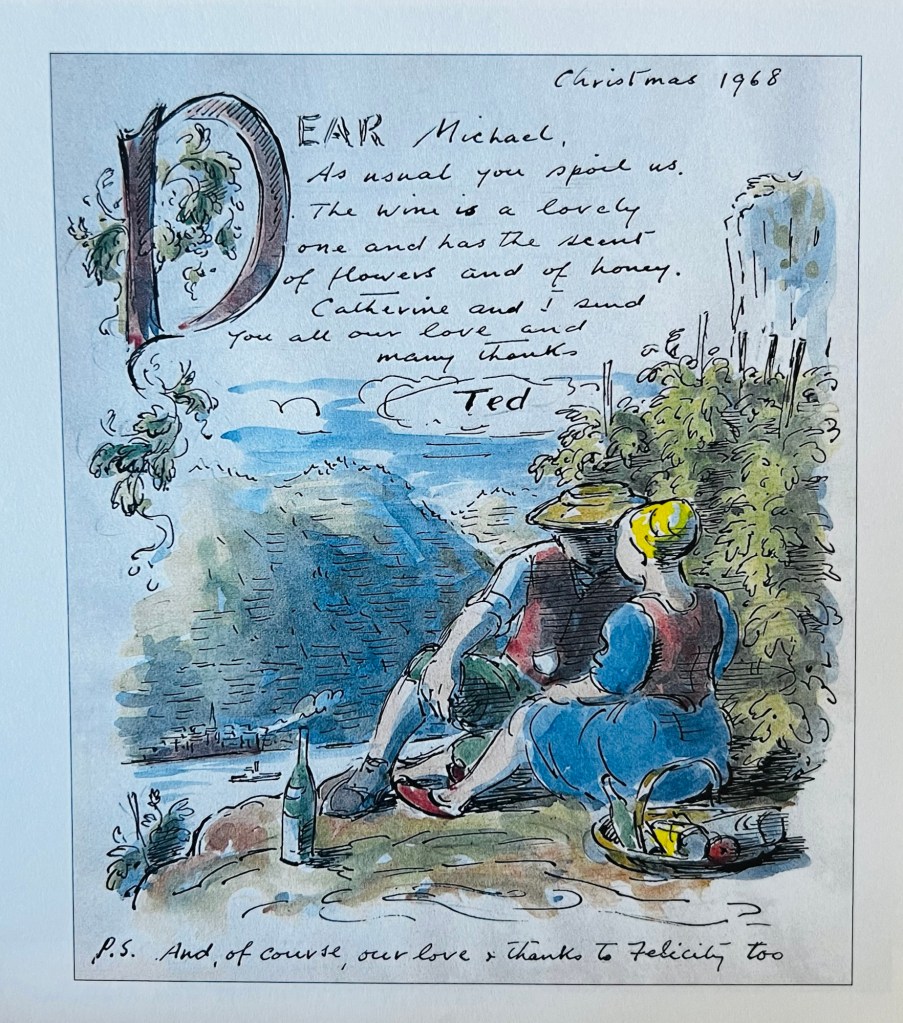 Christmas 1968
DEAR Michael,
As usual you spoil us.
The wine is a lovely
one and has the scent
of flowers and of honey.
Catherine and I send
you all our love and
many thanks
Ted
P.S. And, of course, our love & thanks to Felicity too